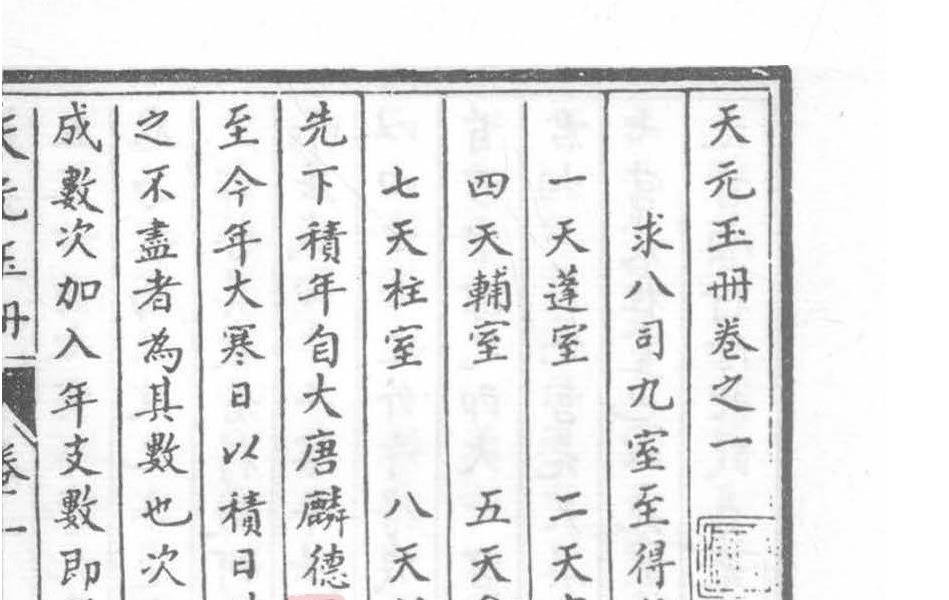 天元玉冊卷之一
求八司九室至得
一天蓬室 二天
四天輔室 五天
七天柱室 八天
先下積年自大唐麟德
至今年大寒日以積日
之不盡者為其數也次
成數次加入年支數即
天元玉冊 卷一